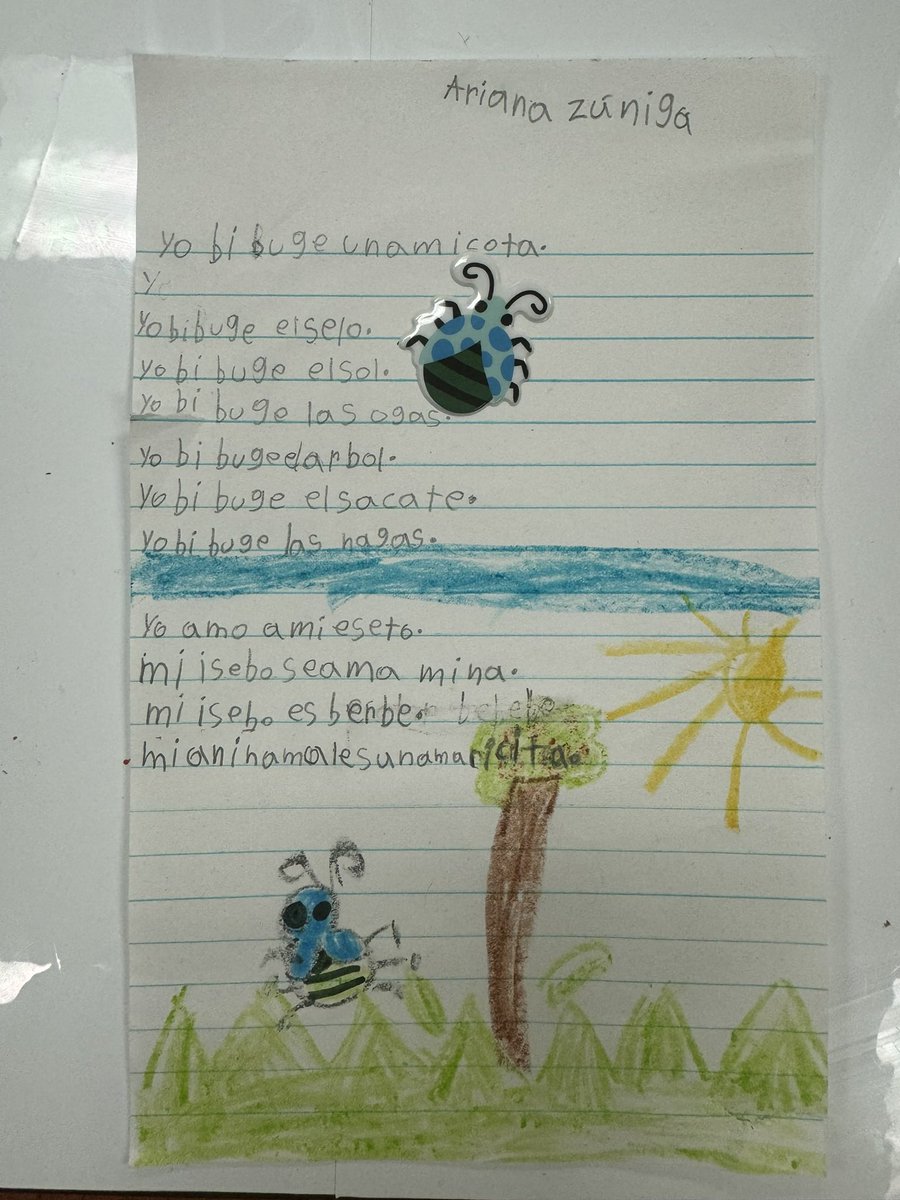 Ariana zúniga
Yo bi buge unamicota.
Y
Yobibuge elselo.
Yo bi buge elsol.
Yo bi buge las ogas.
Yo bi bugedarbol.
Yo bi buge elsacate.
Yo bi buge las nagas.
Yo amo amieseto.
mi iseboseama mina.
mi isebo es berbe.
mianihamalesunamaricitia.